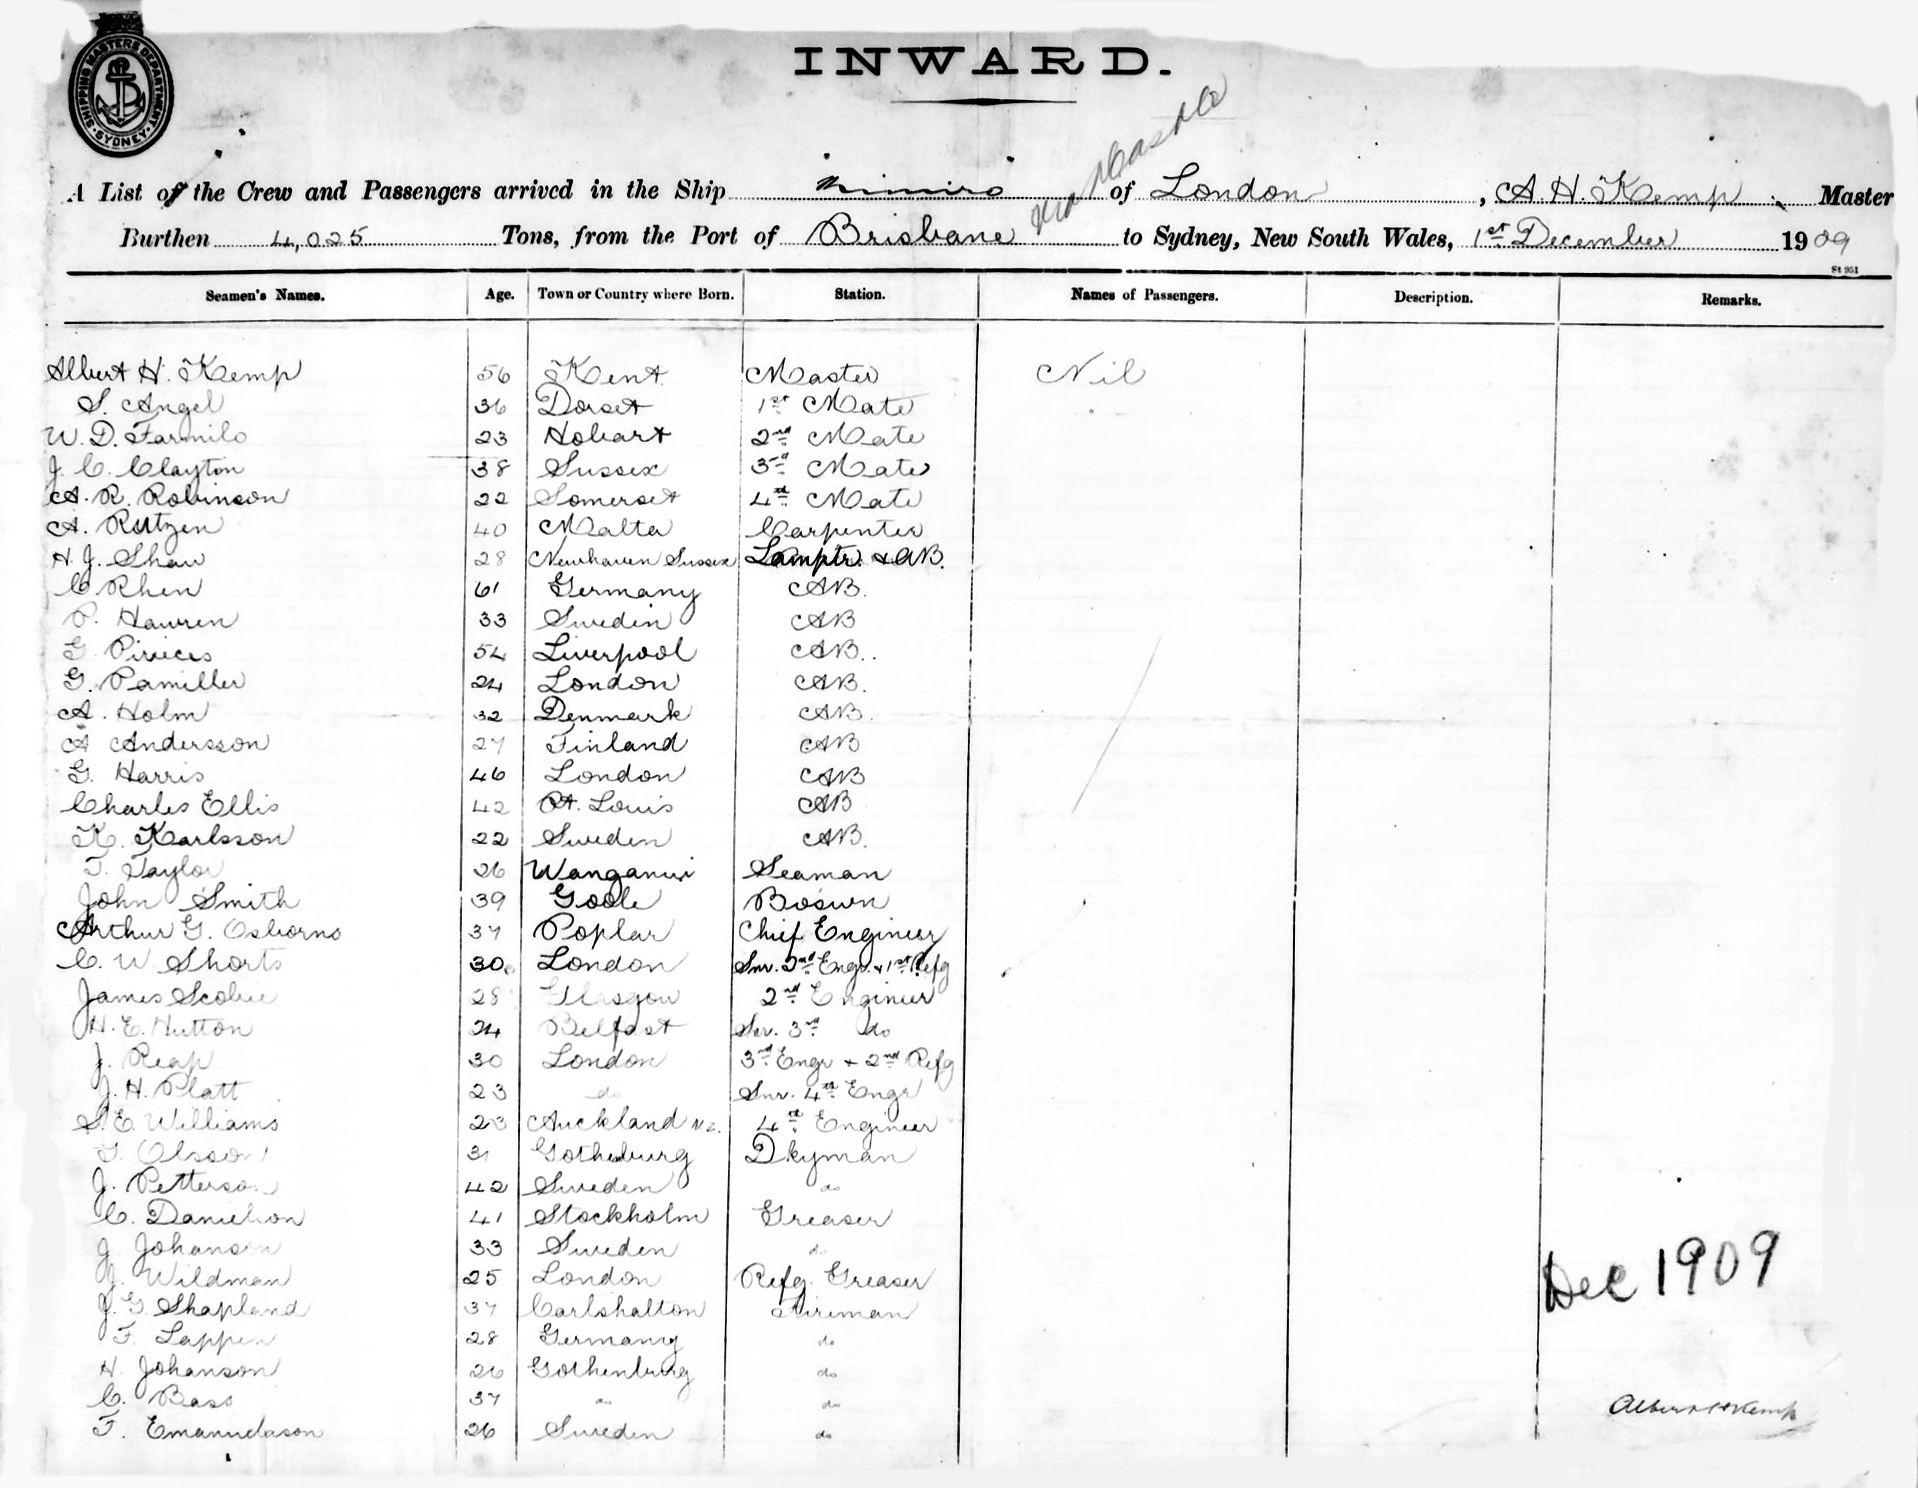 SHIPPING MASTERS DEPARTMENT · SYDNEY ·
INWARD.
A List of the Crew and Passengers arrived in the Ship Mimiro of London, A H. Kemp, Master
Burthen 4,025 Tons, from the Port of Brisbane to Sydney, New South Wales, 1st December 1909
St 951
Seamen's Names. Age. Town or Country where Born. Station. Names of Passengers. Description. Remarks.
Albert H. Kemp 56 Kent Master Nil
S. Angel 36 Dorset 1st Mate
W. D. Farmilo 23 Hobart 2nd Mate
J. C. Clayton 38 Sussex 3rd Mate
A. R. Robinson 22 Somerset 4th Mate
A. Rutzen 40 Malta Carpenter
H. J. Shaw 28 Newhaven Sussex Lamptr. & AB.
C. Rhen 61 Germany AB.
P. Hawren 33 Sweden AB
G. 54 Liverpool AB.
G. Pamiller 24 London AB.
A. Holm 32 Denmark AB.
A Andersson 27 Finland AB
G. Harris 46 London AB
Charles Ellis 42 St. Louis AB
K. Karlsson 22 Sweden AB.
T. Taylor 26 Wanganui Seaman
John Smith 39 Goole Bosun
Arthur G. Osborne 37 Poplar Chief Engineer
C. W Shorts 30 London Snr. 2nd Engr. & 1st Refg
James Scobie 28 Glasgow 2nd Engineer
H. E. Hutton 24 Belfast Snr. 3rd do
J. Reap 30 London 3rd Engr + 2nd Refg
J. H. Platt 23 do Snr. 4th Engr
S. E. Williams 23 Auckland N.Z. 4th Engineer
G. Olsson 31 Gothenburg Dkyman
J. Petterson 42 Sweden do
C. Danielson 41 Stockholm Greaser
J Johanson 33 Sweden do
J. Wildman 25 London Refg. Greaser
J. G. Shapland 37 Carlshalton Fireman
F. Lappen 28 Germany do
H. Johanson 26 Gothenburg do
C. Bass 37 do do
F. Emanuelason 26 Sweden do
Dec 1909
Albert H Kemp